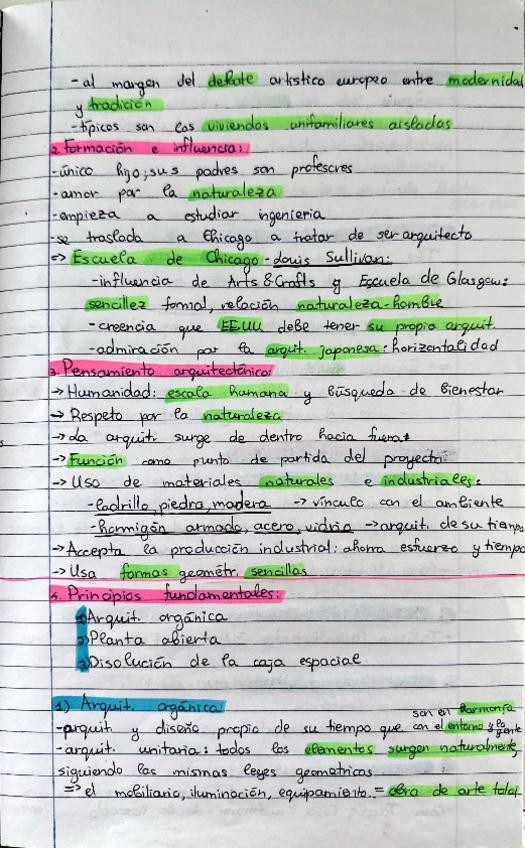 - al margen del debate artistico europeo entre modernidad
y tradición
- típicos son las viviendas unifamiliares aisladas
2. Formación e influencia:
- único hijo; sus padres son profesores
- amor por la naturaleza
- empieza a estudiar ingenieria
- se traslada a Chicago a tratar de ser arquitecto
=> Escuela de Chicago - Louis Sullivan:
- influencia de Arts & Crafts y Escuela de Glasgow:
sencillez formal, relación naturaleza-hombre
- creencia que EEUU debe tener su propia arquit.
- admiración por la arquit. japonesa: horizontalidad
3. Pensamiento arquitectónico:
→ Humanidad: escala humana y búsqueda de bienestar
→ Respeto por la naturaleza
→ La arquit. surge de dentro hacia fuera
→ Función como punto de partida del proyecto
→ Uso de materiales naturales e industriales:
- ladrillo, piedra, madera → vínculo con el ambiente
- hormigón armado, acero, vidrio → arquit. de su tiempo
→ Acepta la producción industrial: ahorra esfuerzo y tiempo
→ Usa formas geométr. sencillas
4. Principios fundamentales:
1) Arquit. orgánica
2) Planta abierta
3) Disolución de la caja espacial
1) Arquit. orgánica
son en harmonía
- arquit y diseño propio de su tiempo que con el entorno y la gente
- arquit. unitaria: todos los elementos surgen naturalmente,
siguiendo las mismas leyes geometricas
=> el mobiliario, iluminación, equipamiento = obra de arte total